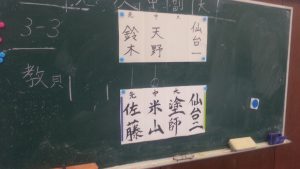 3-3
仙台一
大
中 天野
先 鈴木
仙台二
大 塗師
中 米山
先 佐藤